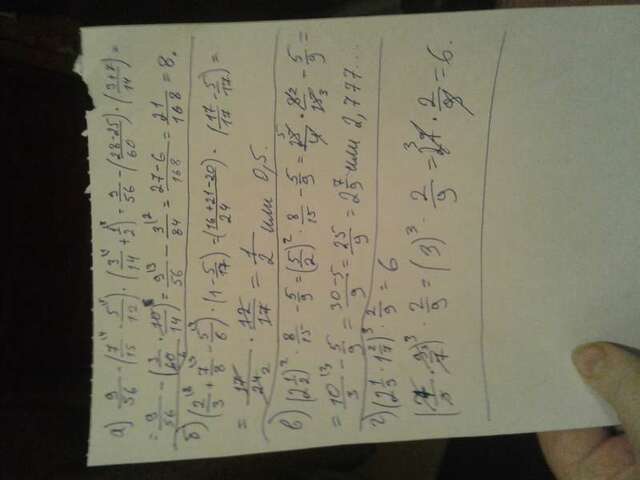 а) 9/56 - (7/15 - 5/12) · (3/14 + 1/2) = 9/56 - (28-25/60) · (3+7/14) =
= 9/56 - (3/60 · 10/14) = 9/56 - 3/84 = 27-6/168 = 21/168 = 8.
б) (2/3 + 7/8 - 5/6) · (1 - 5/17) = (16+21-20/24) · (17/17 - 5/17) =
= 17/24 · 12/17 = 1/2 или 0,5.
в) (2 1/2)² · 8/15 - 5/9 = (5/2)² · 8/15 - 5/9 = 25/4 · 8/15 - 5/9 =
= 10/3 - 5/9 = 30-5/9 = 25/9 = 2 7/9 или 2,777...
г) (2 1/3 · 1 2/7)³ · 2/9 = 6
(7/3 · 9/7)³ · 2/9 = (3)³ · 2/9 = 27 · 2/9 = 6.